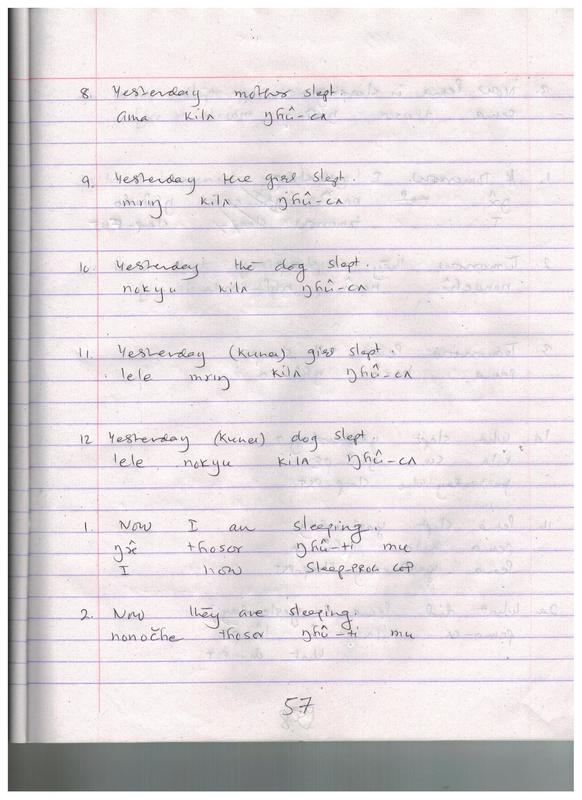 8. Yesterday mother slept.
ama kilʌ ŋɦû-cʌ
9. Yesterday the girl slept.
mriŋ kilʌ ŋɦû-cʌ
10. Yesterday the dog slept.
nokyu kilʌ ŋɦû-cʌ
11. Yesterday (kuna) girl slept.
lele mriŋ kilʌ ŋɦû-cʌ
12 Yesterday (kuna) dog slept.
lele nokyu kilʌ ŋɦû-cʌ
1. Now I am sleeping.
thosor ŋɦû-ti mu
I now sleep-PROG COP
2. Now they are sleeping.
nonočhe thosor ŋɦû-ti mu
57